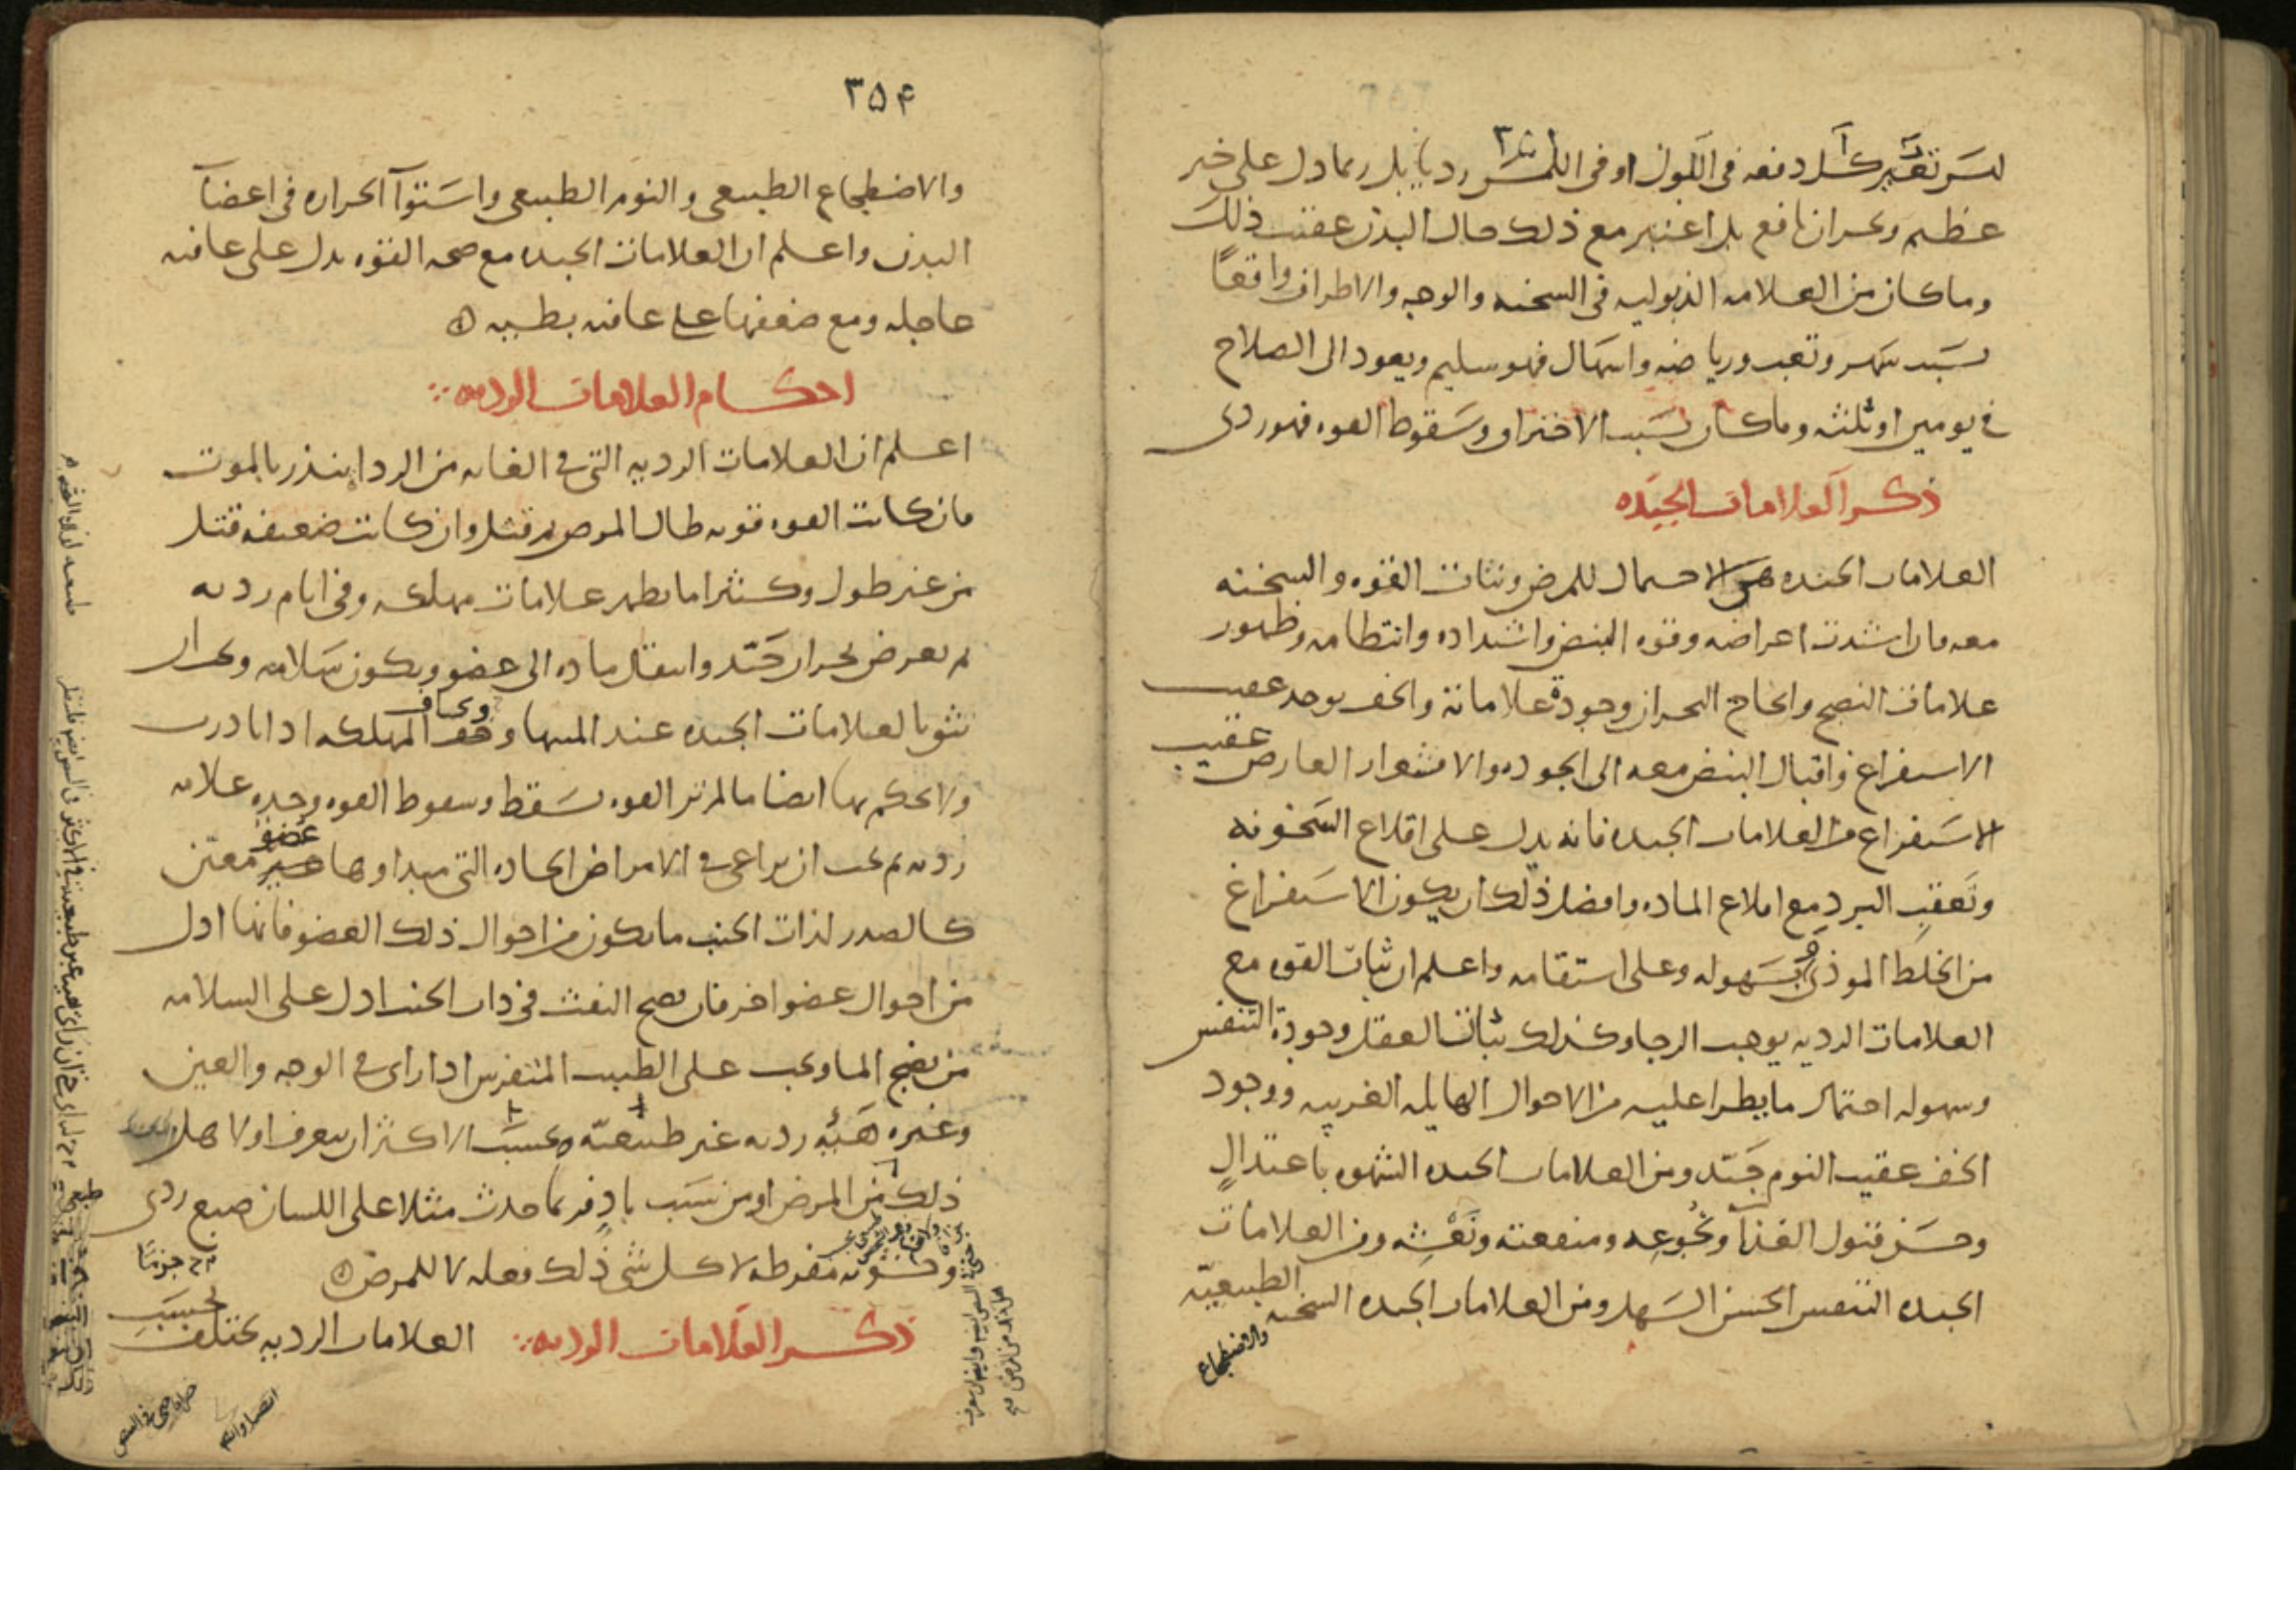 ليس تغير كل دفعه فى اللون او فى اللمس رديا بل ربما دل على خير
عظيم وبحران نافع بل اعتبر مع ذلك حال البدن عقيب ذلك
وما كان من العلامه الذبوليه فى السخنه والوجه والاطراف واقعًا
بسَبب سهر وتعب ورياضه واسهال فهو سليم ويعود الى الصلاح
فى يومين او ثلثه وما كان بسَبب الاحتراق وسَقوط القوه فهو ردى
ذكر العلامات الجيَده
العلامات الجيده هى الاحتمال للمرض وثبات القوه والسخنه
معه وان اشدت اعراضه وقوه النبض واشتداده وانتظامه وظهور
علامات النضج وانجاح البحران وجودة علاماته والخف يوجد عقيب
الاستفراغ واقبال النبض معه الى الجوده والاقشعرار العارض عقيب
الاسَتفراغ من العلامات الجيده فانه يدل على اقلاع السَخونه
وتَعقب البرد مع اقلاع الماده وافضل ذلك ان يكون الاسَتفراغ
من الخلط الموذى وبسَهوله وعلى استقامه واعلم ان ثبات القوه مع
العلامات الرديه يوجب الرجا وكذلك ثبات العقل وجودة التنفس
وسهوله احتمال ما يطرا عليه من الاحوال الهايله الغريبه ووجود
الخف عقيب النوم جَيّد ومن العلامات الجيده الشهوه باعتدالٍ
وحسَن قبول الغذآ ونجُوعِه ومنفعته ونَعْشِه ومن العلامات
الجيده التنفس الحسن السَهل ومن العلامات الجيده السخنه الطبيعيّه
والاضطجاع
٣٥۴
والاضطجاع الطبيعى والنوم الطبيعى واسَتوآ الحراره فى اعضآ
البدن واعلم ان العلامات الجيده مع صحه القوه يدل على عافيه
عاجله ومع ضعفها على عافيه بطيه
احكام العلامات الرديه
اعلم ان العلامات الرديه التى فى الغايه من الردا ينذر بالموت
فان كانت القوه قويه طال المرض ثم قتل وان كانت ضعيفه قتل
من غير طول وكثيرا ما يظهر علامات مهلكه وفى ايام رديه
ثم يعرض بحران جَيّد وانتقال ماده الى عضو ويكون سَلامه ويجب ان
نثق بالعلامات الجيده عند المنتها ويخاف المهلكه اذا بادرت
ولا يحكم بها ايضا ما لم تر القوه تسَقط وسقوط القوه وحده علامه
رديه ثم يجب ان يراعى فى الامراض الحاده التى مبداوها عضو معيّن
كالصدر لذات الجنب ما يكون من احوال ذلك العضو فانها ادل
من احوال عضو اخر فان نضج النفث فى ذات الجنب ادل على السلامه
من نضج الما ويجب على الطبيب المتفرس اذا راى فى الوجه والعين
وغيره هَيئه رديه غير طبيعيّه بحسَب الاكثر ان يعرف اولا هل
ذلك من المرض او من سَبب بادٍ فربما حدث مثلا على اللسان صبغ ردى
وخشونه مفرطه لاكل شى ذلك فعله لا للمرض
ذكر العلامات الرديه العلامات الرديه تختلف بحسَب